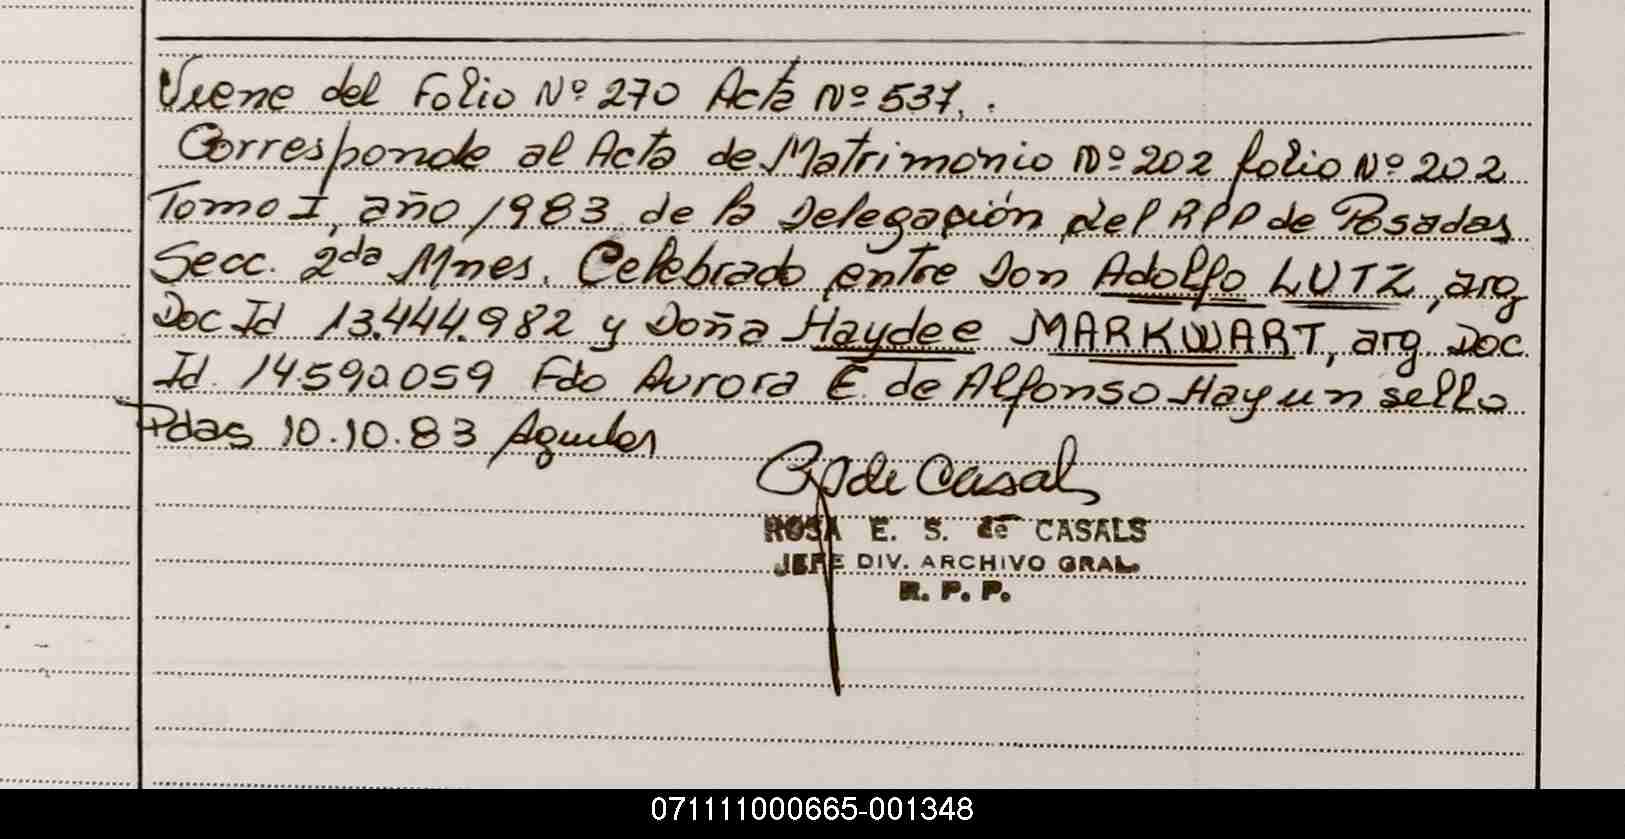 Viene del Folio Nº 270 Acta Nº 537.
Corresponde al Acta de Matrimonio Nº 202 folio Nº 202
Tomo I, año 1983 de la Delegación del RPP de Posadas
Secc. 2da Mnes. Celebrado entre Don Adolfo LUTZ, arg
Doc Id 13.444.982 y Doña Haydee MARKWART, arg Doc
Id. 14.590.059 Fdo Aurora E. de Alfonso Hay un sello
Pdas 10.10.83
de Casals
ROSA E. S. de CASALS
JEFE DIV. ARCHIVO GRAL.
R. P. P.
071111000665-001348